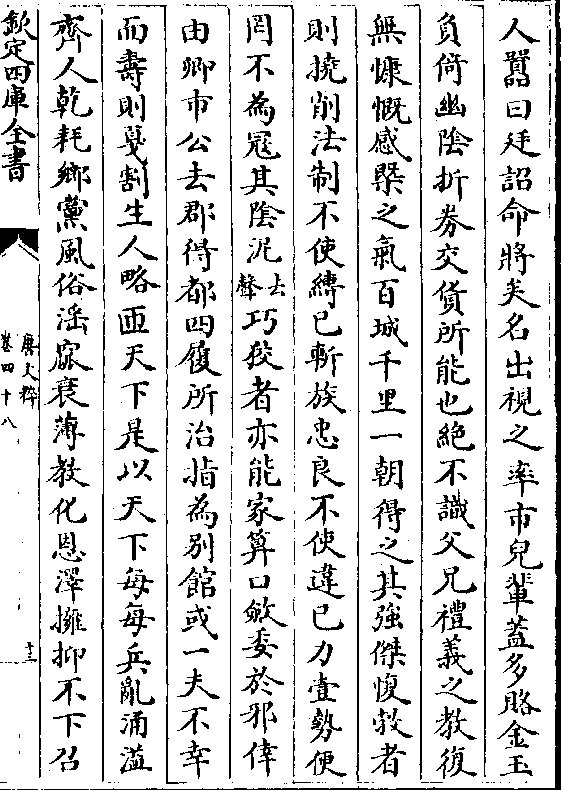 人嚚曰廷詔命將矣名出視之率市兒輩蓋多賂金玉
負倚幽陰折券交貨所能也絶不識父兄禮義之教復
無慷慨感槩之氣百城千里一朝得之其強傑愎㪍者
則撓削法制不使縛已斬族忠良不使違已力壹勢便
罔不為冦其陰泥去聲巧狡者亦能家算口斂委於邪倖
由卿市公去郡得都四履所治指為别館或一夫不幸
而壽則戛割生人略匝天下是以天下每每兵亂涌溢
齊人乾耗鄉黨風俗滛窳衰薄教化恩澤擁抑不下召
欽定四庫全書
唐文粹
卷四十八
十三